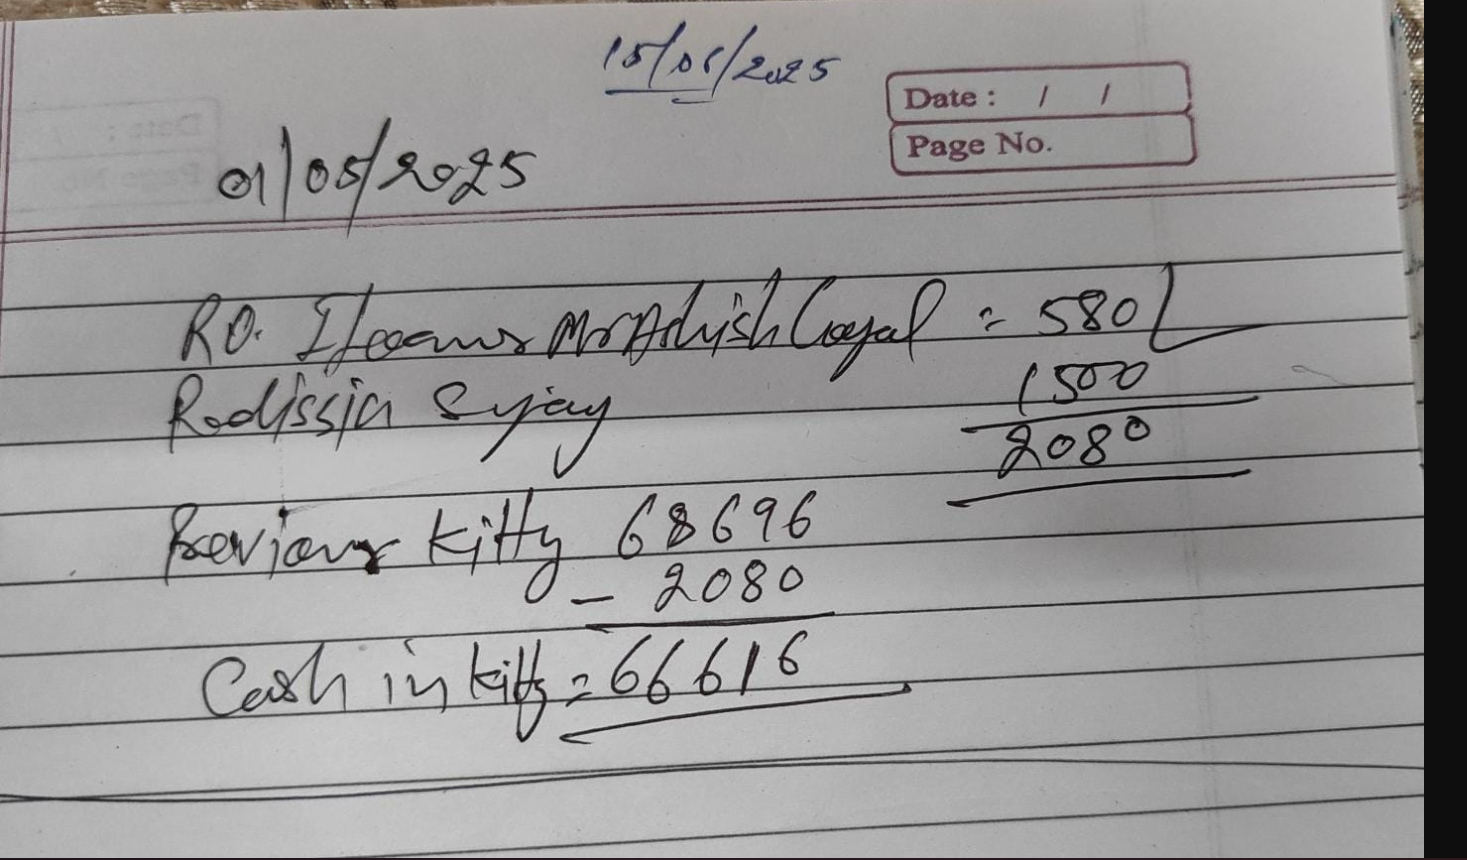 15/05/2025
Date : / /
Page No.
01/05/2025
RO. Mr Ashish Goyal = 580
1500
2080
Previous Kitty 68696
- 2080
Cash in Kitty = 66616